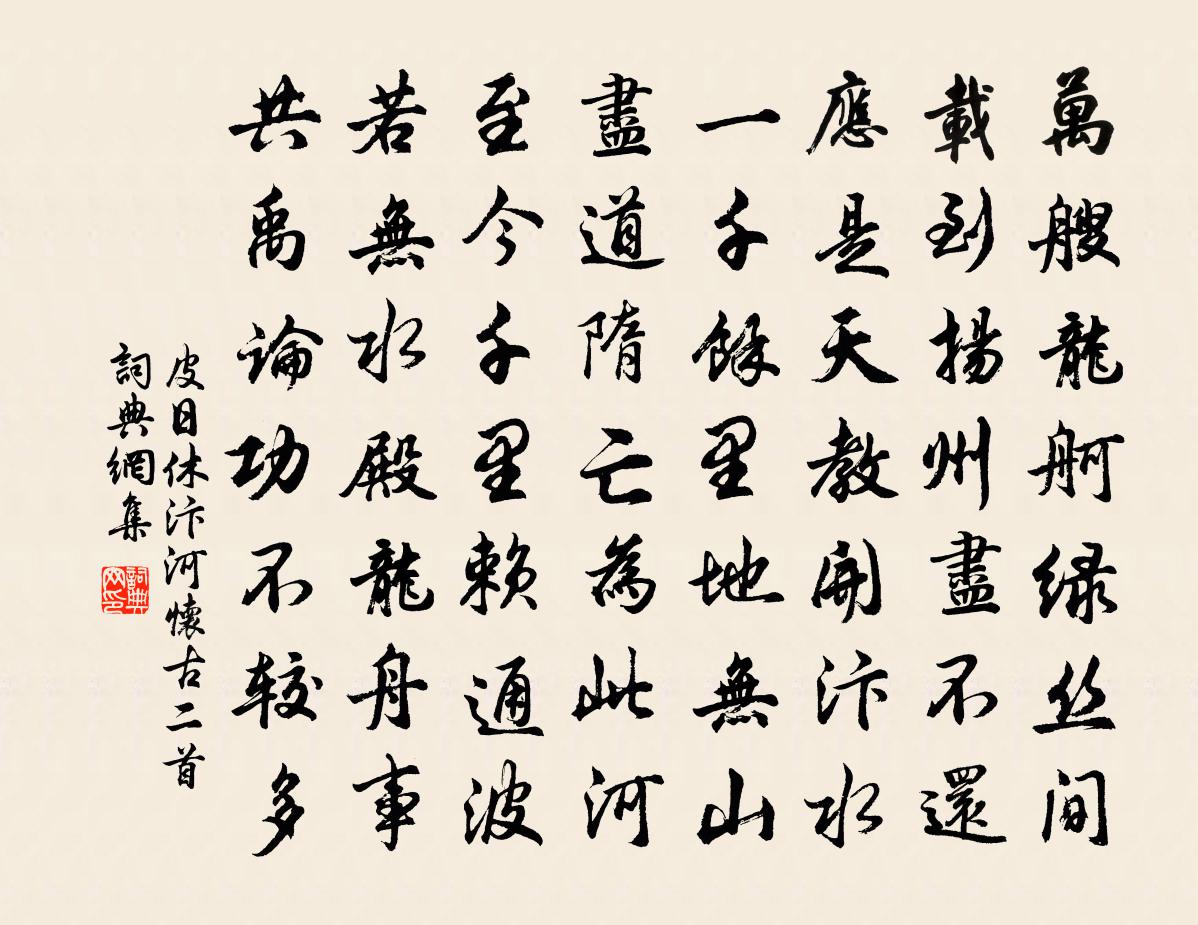 萬艘龍舸绿丝间
載到揚州盡不還
應是天教開汴水
一千餘里地無山
盡道隋亡為此河
至今千里賴通波
若無水殿龍舟事
共禹論功不較多
皮日休汴河懷古二首
詞典網集
詞典网印